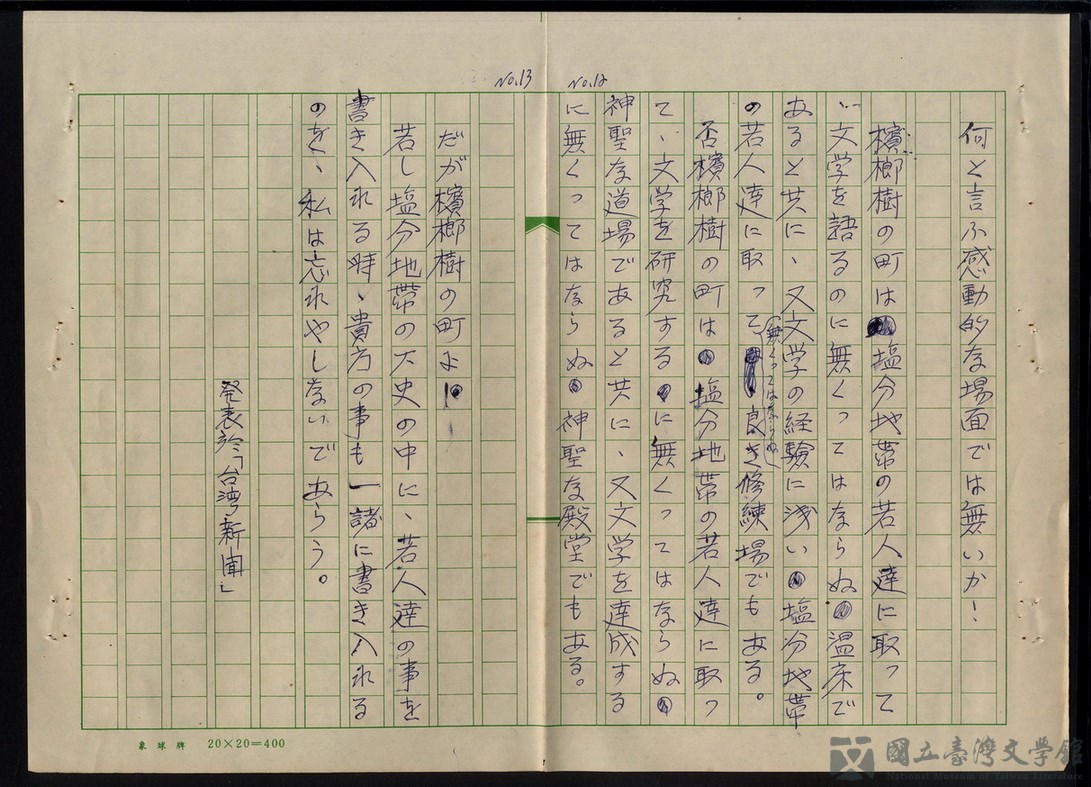 No.12
何と言ふ感動的な場面では無いか!
檳榔樹の町は塩分地帯の若人達に取って
、文学を語るのに無くってはならぬ温床で
あると共に、又文学の経験に浅い塩分地帯
の若人達に取って無くってはならぬ良き修練場でもある。
否檳榔樹の町は塩分地帯の若人達に取っ
て、文学を研究するに無くってはならぬ
神聖な道場であると共に、又文学を達成する
に無くってはならぬ神聖な殿堂でもある。
No.13
だが檳榔樹の町よ!
若し塩分地帯の文史の中に、若人達の事を
書き入れる時、貴方の事も一諸に書き入れる
のを、私は忘れやしないであらう。
発表於「台湾新聞」
象球牌 20×20=400
國立臺灣文學館
National Museum of Taiwan Literature